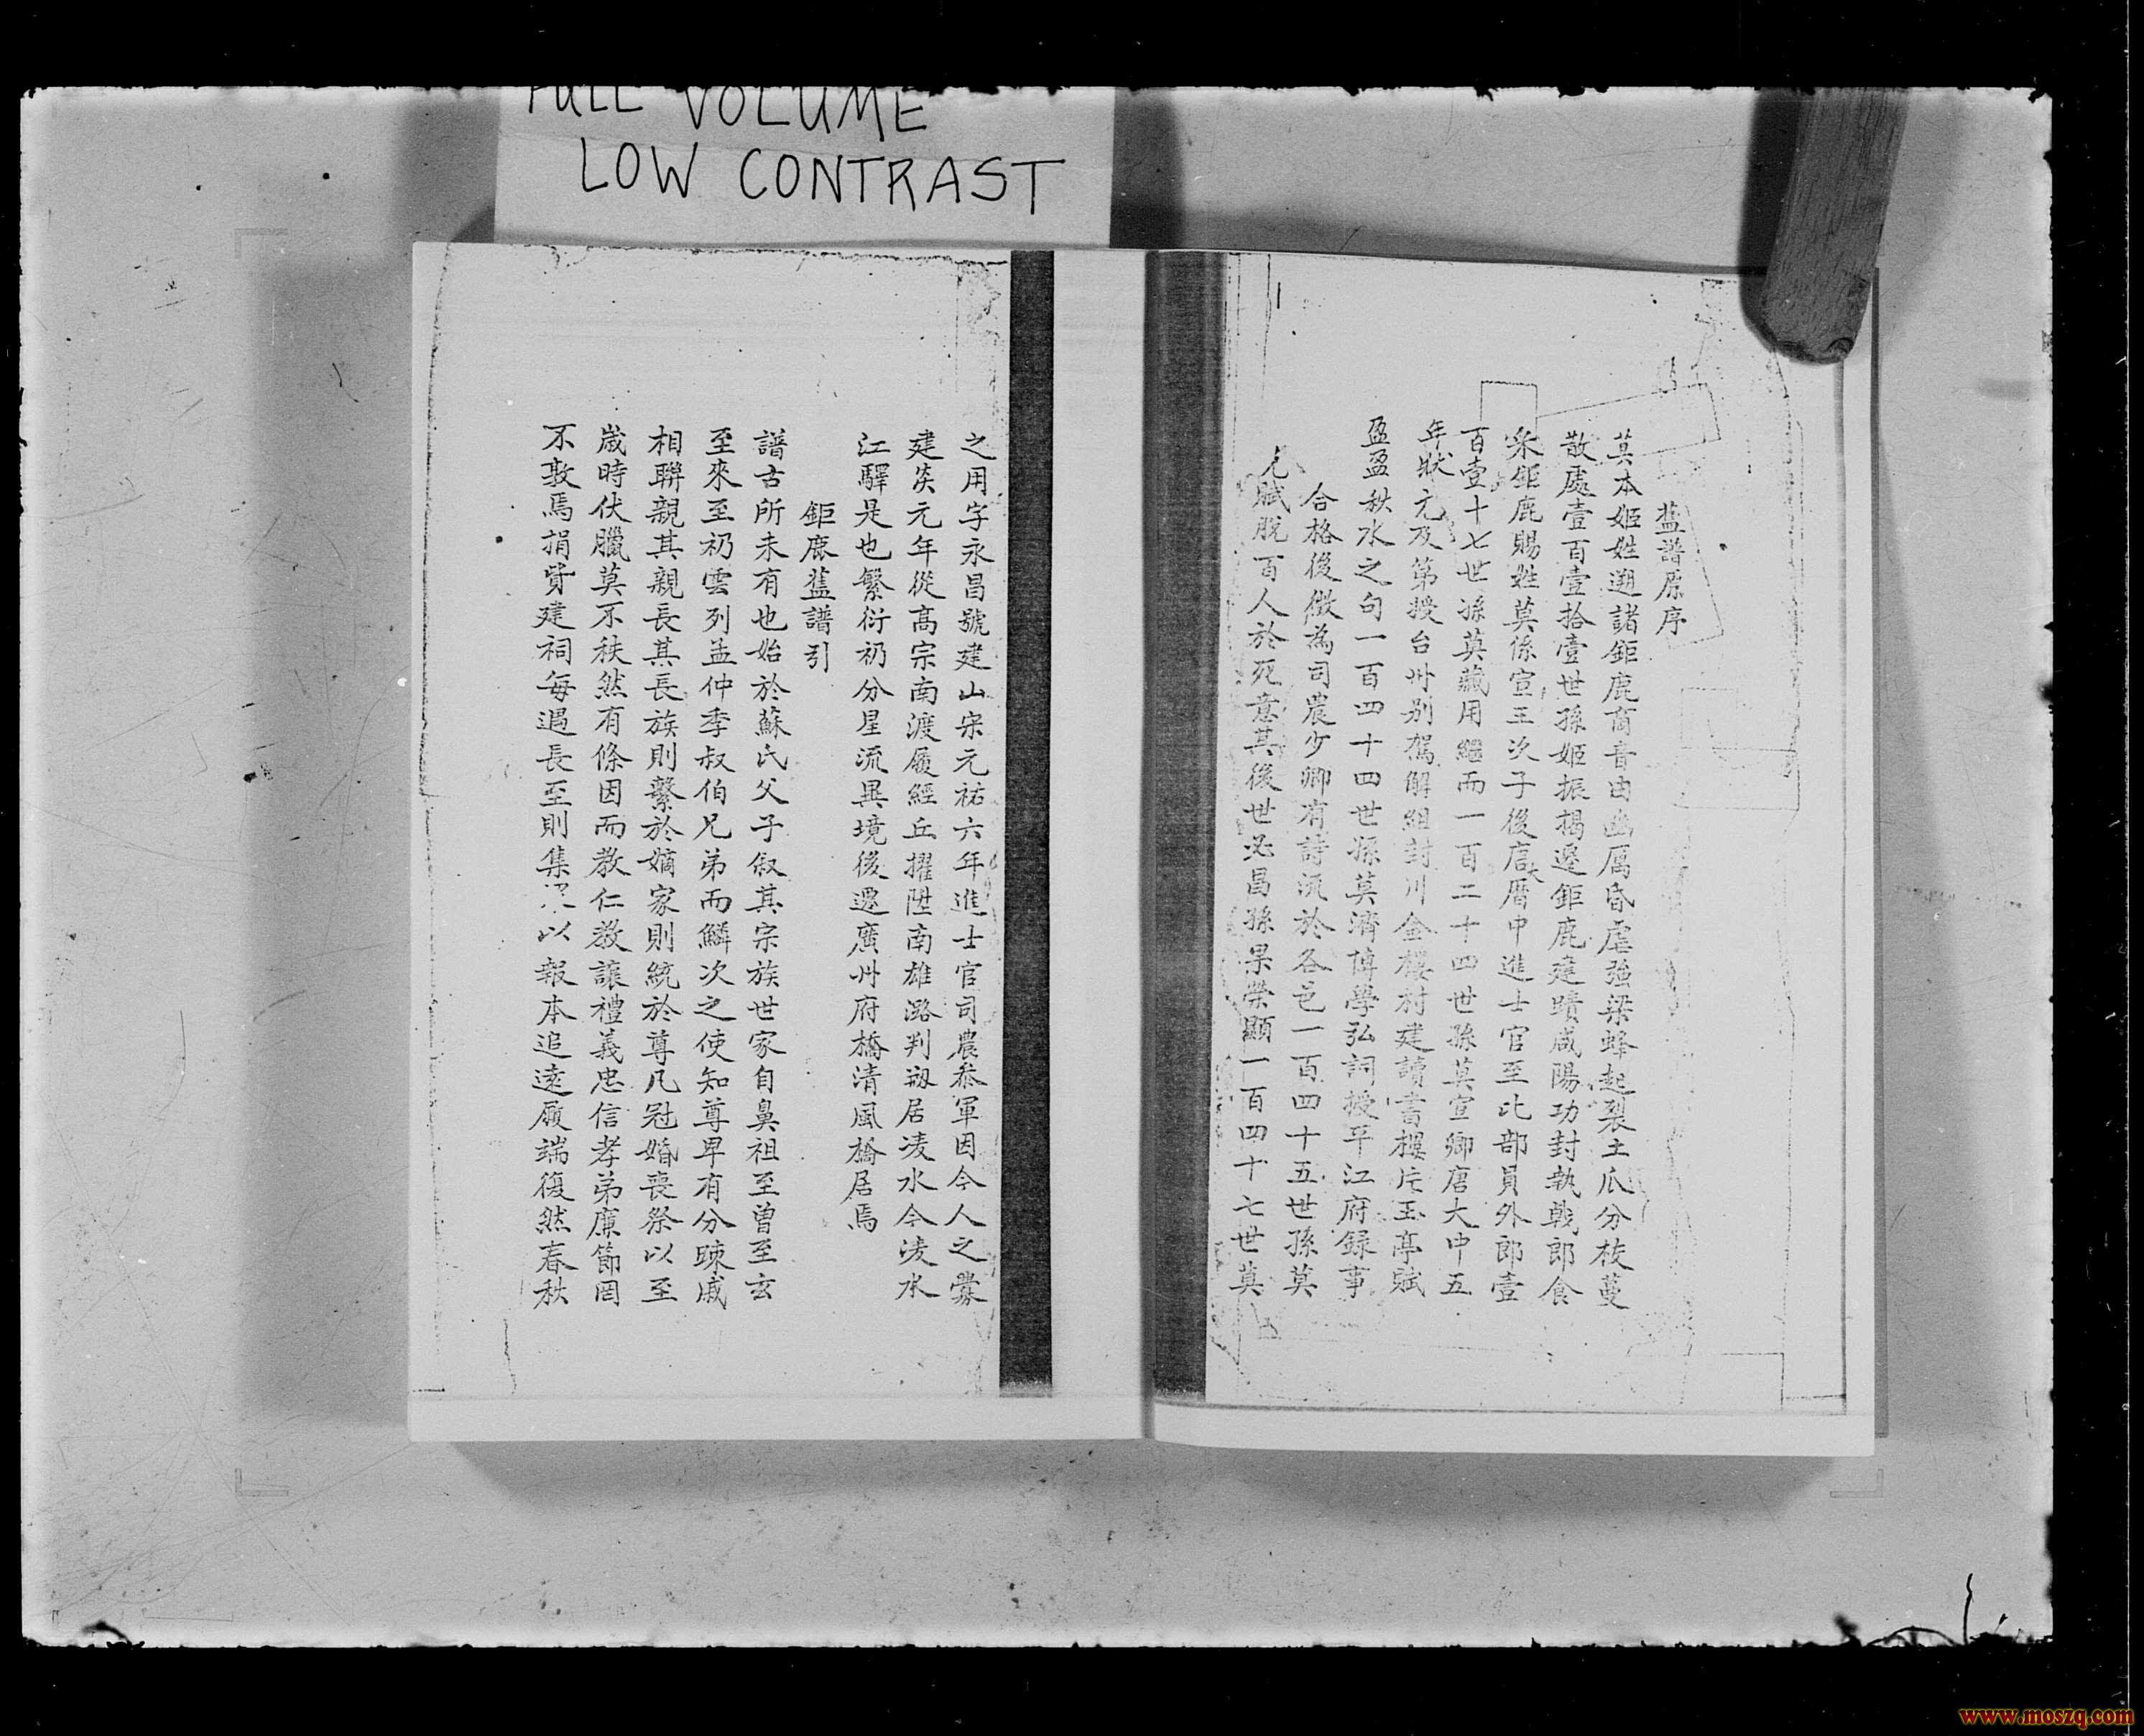 FULL VOLUME
LOW CONTRAST
藍譜原序
莫本姬姓遡諸鉅鹿啇音由幽厲昏虐強梁蜂起裂土瓜分枝蔓
散處壹百壹拾壹世孫姬振揭邊鉅鹿建蹟咸陽功封執戟郎食
采鉅鹿賜姓莫係宣王次子後唐大曆中進士官至比部員外郎壹
百壹十七世孫莫藏用繼而一百二十四世孫莫宣卿唐大中五
年狀元及第授台州别駕解組封川金樓村建讀書樓片玉亭賦
盈盈秋水之句一百四十四世孫莫濟博學弘詞授平江府録事
合格後徵為司農少卿有詩流於各邑一百四十五世孫莫
元賦脫百人於死意其後世必昌孫果榮顯一百四十七世莫
之用字永昌號建山宋元祐六年進士官司農叅軍因今人之爨
建炎元年從高宗南渡履經丘擢陞南雄潞判剏居凌水今淩水
江驛是也繁衍礽分星流異境後遷廣州府橋清風橋居焉
鉅鹿藍譜引
譜古所未有也始於蘇氏父子叙其宗族世家自鼻祖至曾至玄
至來至礽雲列孟仲季叔伯兄弟而鱗次之使知尊卑有分疎戚
相聯親其親長其長族則繫於嫡家則統於尊凡冠婚喪祭以至
歲時伏臘莫不秩然有條因而教仁教讓禮義忠信孝弟廉節罔
不斁焉捐貲建祠每遇長至則集以報本追遠履端復然春秋
www.moszq.com